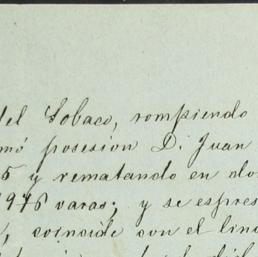 del Sobaco, rompiendo
mó posesion D. Juan
5 y rematando en do
1976 varas; y se espres
, coincide con el lin